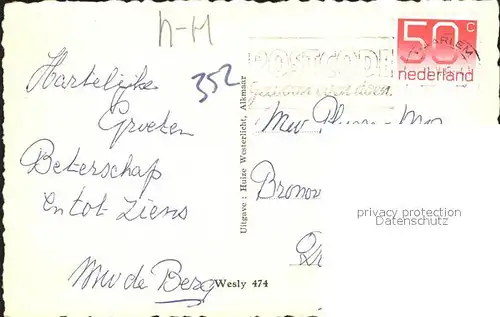 n-H
352
Hartelijke
Groeten
Beterschap
en tot Ziens
Mw de Berg
Wesly 474
Uitgave: Huize Westerlicht, Alkmaar
50 c
nederland
HAARLEM
POSTCODE
Mw
Bronov
privacy protection
Datenschutz